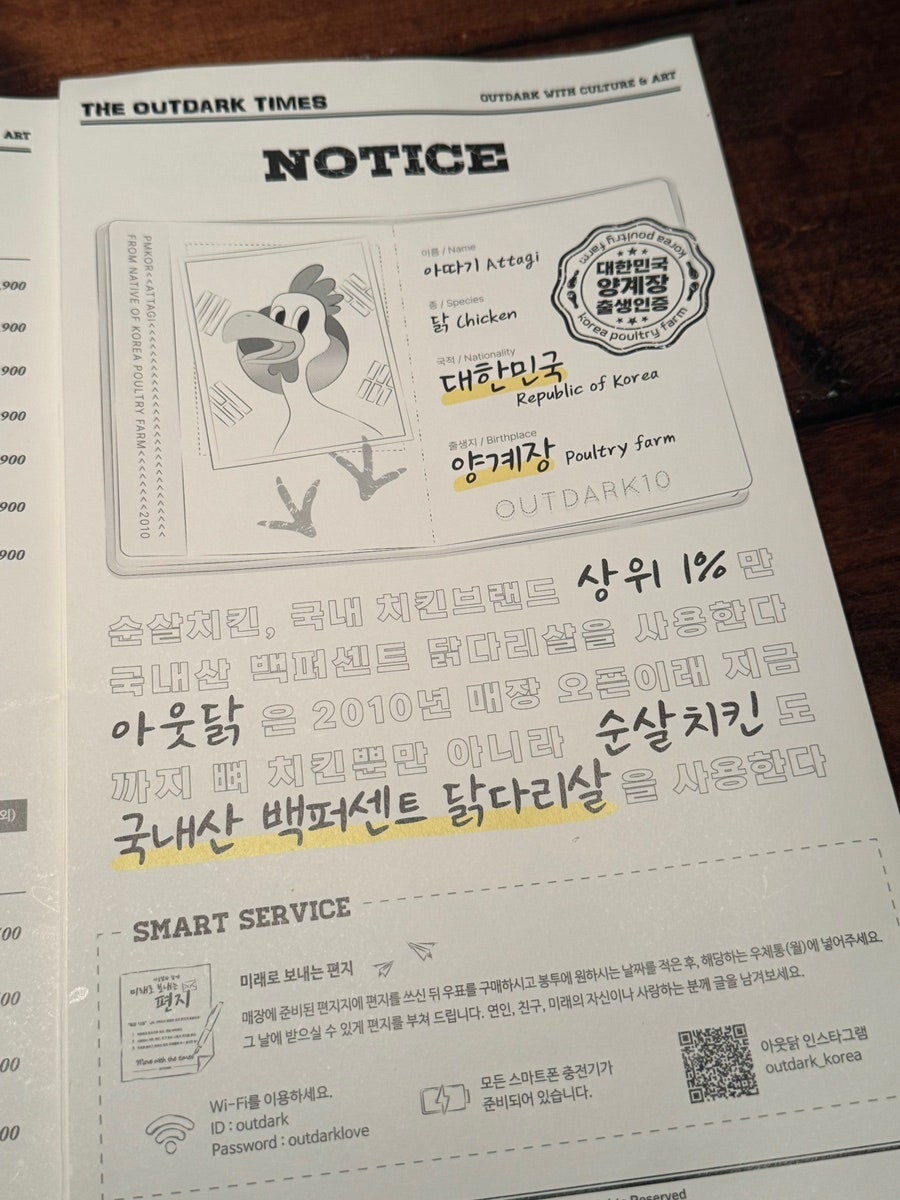 ART
THE OUTDARK TIMES
OUTDARK WITH CULTURE & ART
NOTICE
PMKOR<<ATTAGI<<<<<<<<<<<<<<<<<<<<<<<<<<<
FROM NATIVE OF KOREA POULTRY FARM<<<<<<<<2010
이름 / Name
아따기 Attagi
종 / Species
닭 Chicken
국적 / Nationality
대한민국
Republic of Korea
출생지 / Birthplace
양계장 Poultry farm
OUTDARK10
korea poultry farm
대한민국
양계장
출생인증
korea poultry farm
순살치킨, 국내 치킨브랜드 상위 1% 만
국내산 백퍼센트 닭다리살을 사용한다
아웃닭 은 2010년 매장 오픈이래 지금
까지 뼈 치킨뿐만 아니라 순살치킨 도
국내산 백퍼센트 닭다리살 을 사용한다
SMART SERVICE
미래로 보내는
편지
미래로 보내는 편지
매장에 준비된 편지지에 편지를 쓰신 뒤 우표를 구매하시고 봉투에 원하시는 날짜를 적은 후, 해당하는 우체통(월)에 넣어주세요.
그 날에 받으실 수 있게 편지를 부쳐 드립니다. 연인, 친구, 미래의 자신이나 사랑하는 분께 글을 남겨보세요.
Wi-Fi를 이용하세요.
ID : outdark
Password : outdarklove
모든 스마트폰 충전기가
준비되어 있습니다.
아웃닭 인스타그램
outdark_korea
900
900
900
900
900
900
900
외)
00
00
00
00
Reserved